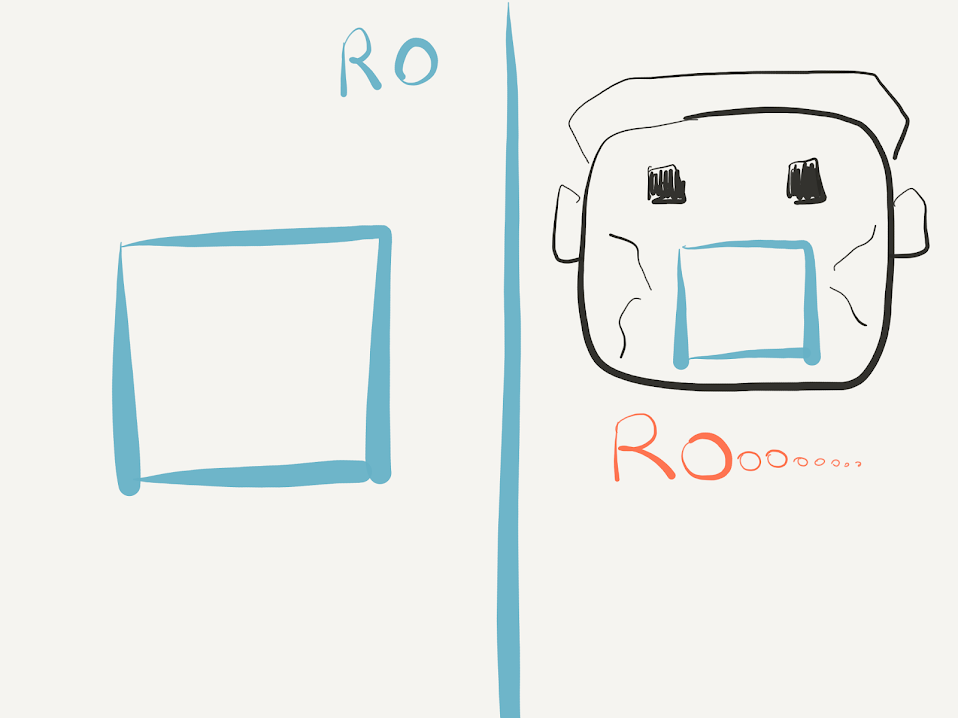 RO
ロ
ロ
ROooooooo